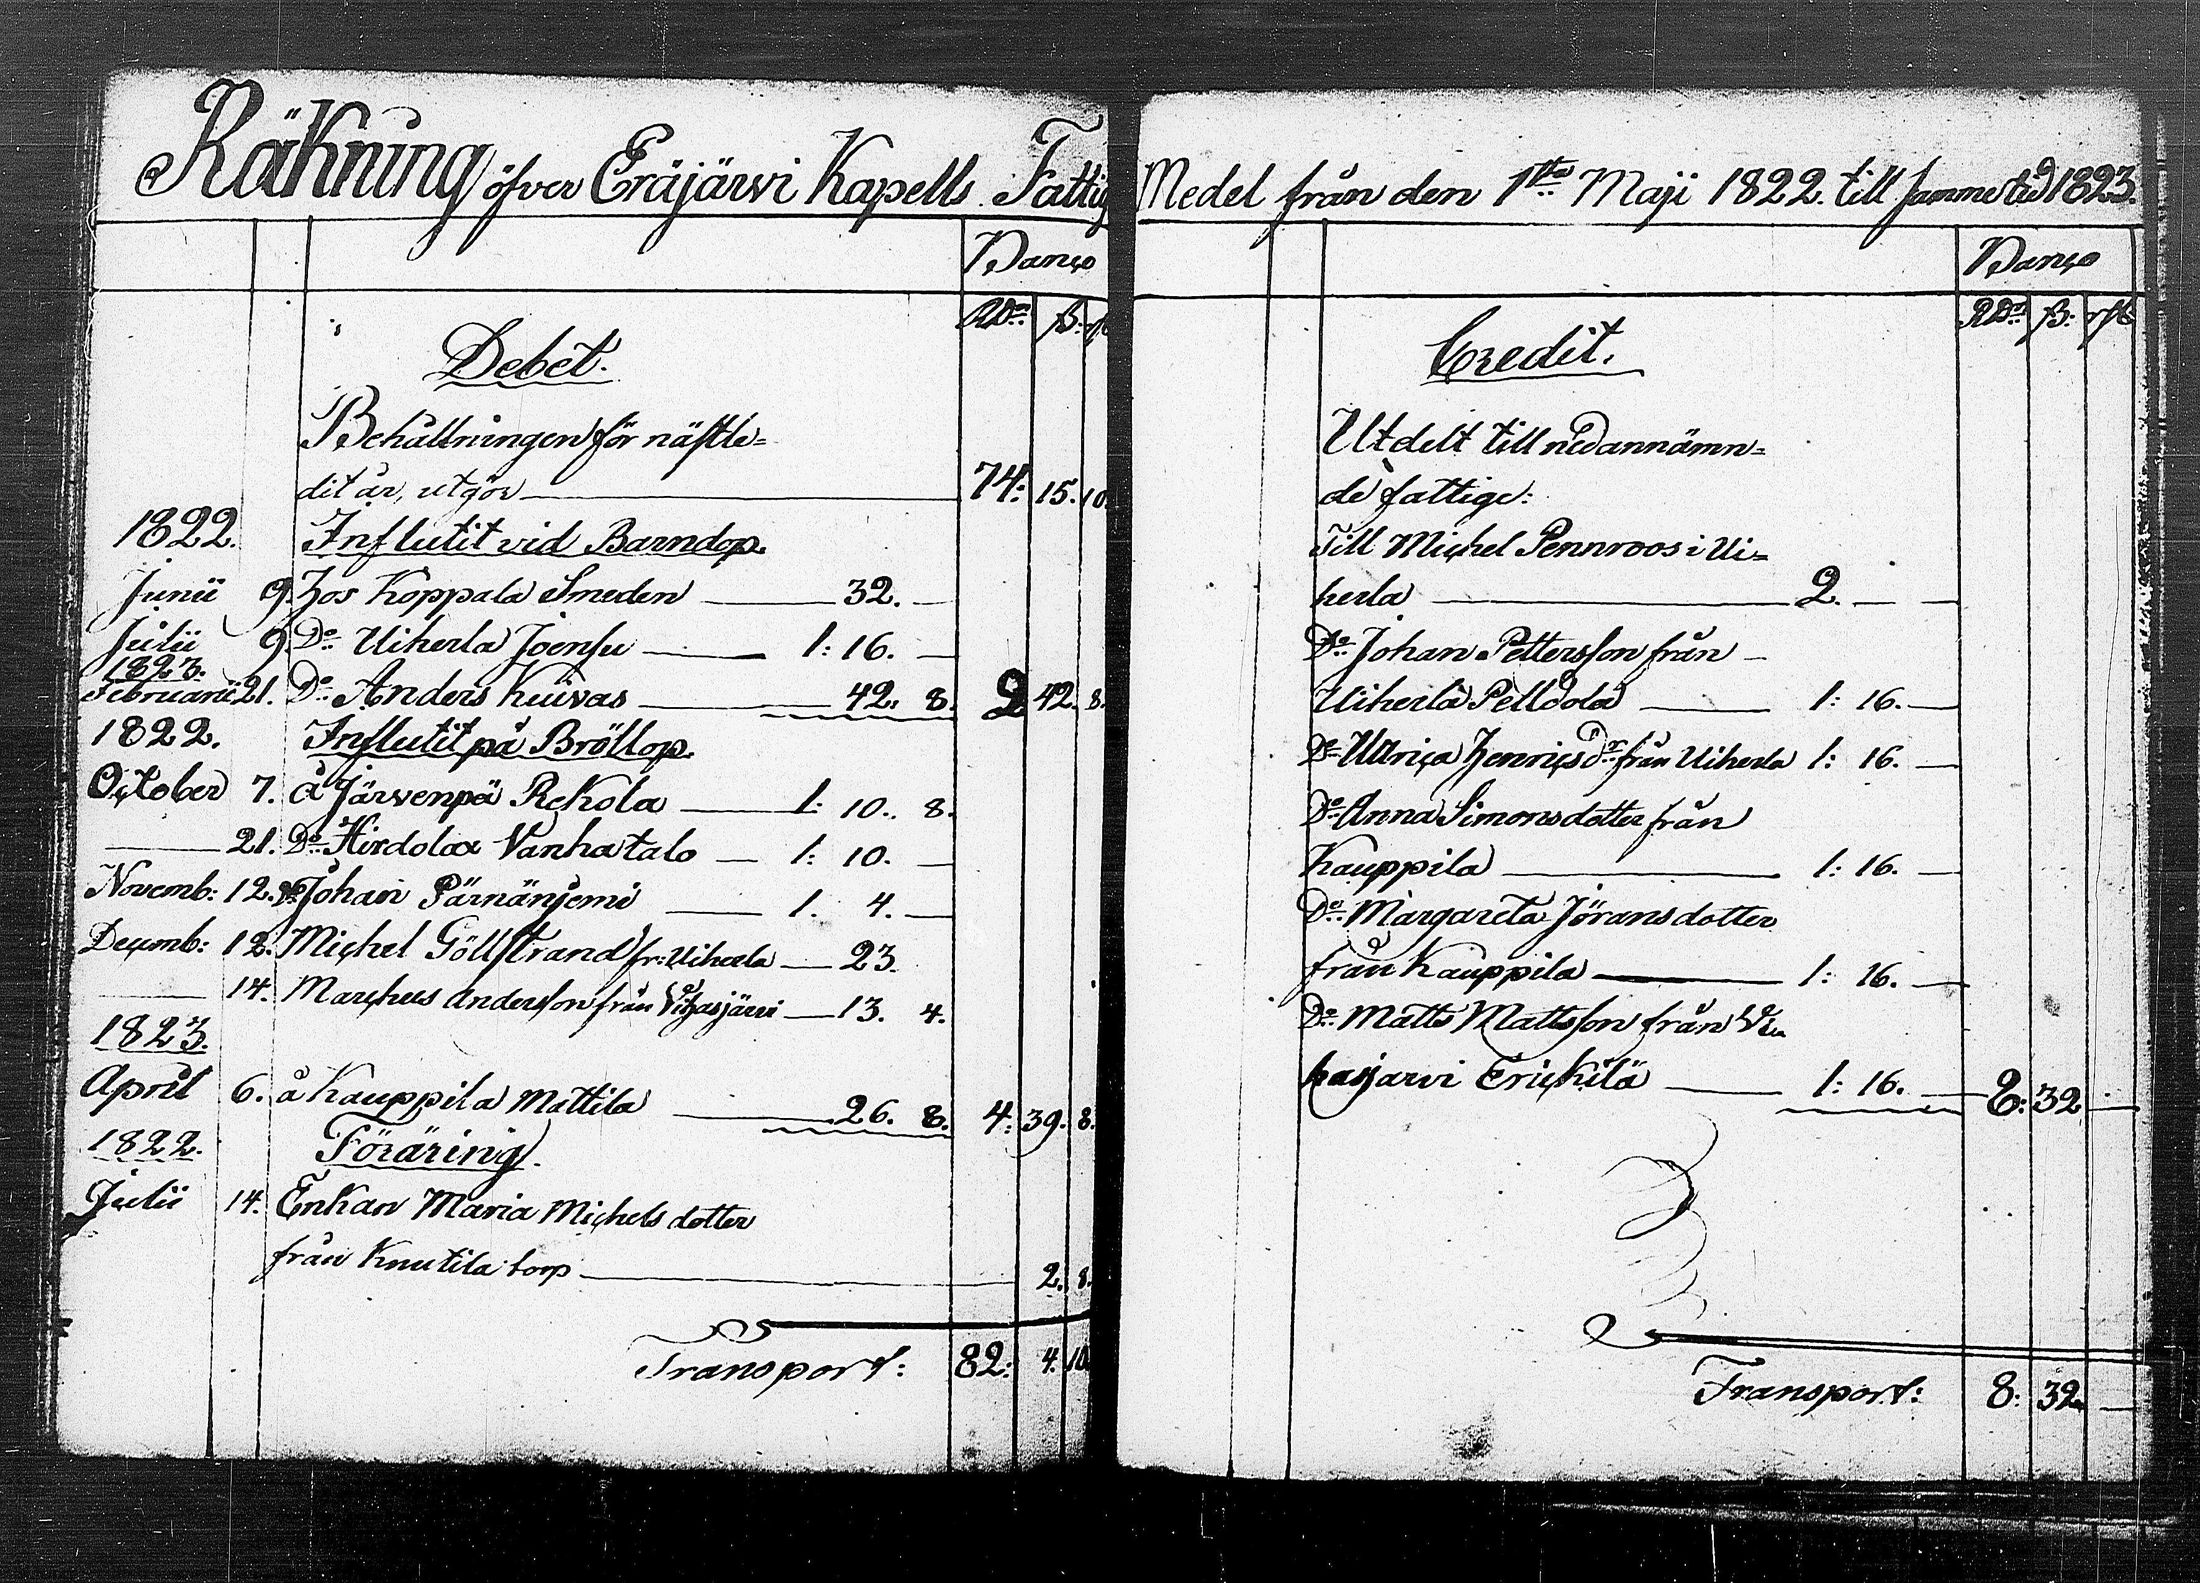 Räkning öfver Eräjärvi Kapells Fattig Medel från den 1sta Maji 1822. till samme tid 1823.
Banco
RDr. ß: rst
Debet.
Behållningen för nästle=
dit år, utgör 74: 15. 10.
1822. Influtit vid Barndop.
Junii 9. Hos Koppala Smeden 32.
Julii 9. Do Uiherla Joensu 1: 16.
1823.
Februarii 21. Do Anders Kuivas 42. 8. 2 42. 8.
1822. Influtit på Bröllop.
October 7. å Järvenpä Rekola 1: 10. 8.
21. Do Hirdolax Vanhatalo 1: 10.
Novemb: 12. Do Johan Pärnänjemi 1. 4.
Decemb: 12. Michel Göllstrand fr: Uiherla 23.
14. Marchus Andersson från Vihasjärvi 13. 4.
1823.
April 6. å Kauppila Mattila 26. 8. 4: 39. 8.
1822. Föräring.
Julii 14. Enkan Maria Michelsdotter
från Knutila torp 2. 8.
Transport: 82: 4. 10.
Banco
RDr. ß: rst
Credit.
Utdelt till nedannämn=
de fattige:
Till Michel Pennroos i Ui=
herla 2.
Do Johan Pettersson från
Uiherla Pelldola 1: 16.
Do Ullrica Henricsdr från Uiherla 1: 16.
Do Anna Simonsdotter från
Kauppila 1: 16.
Do Margareta Jöransdotter
från Kauppila 1: 16.
Do Matts Mattsson från Vi=
hasjarvi Erickilä 1: 16. 8: 32
Transport: 8: 32.